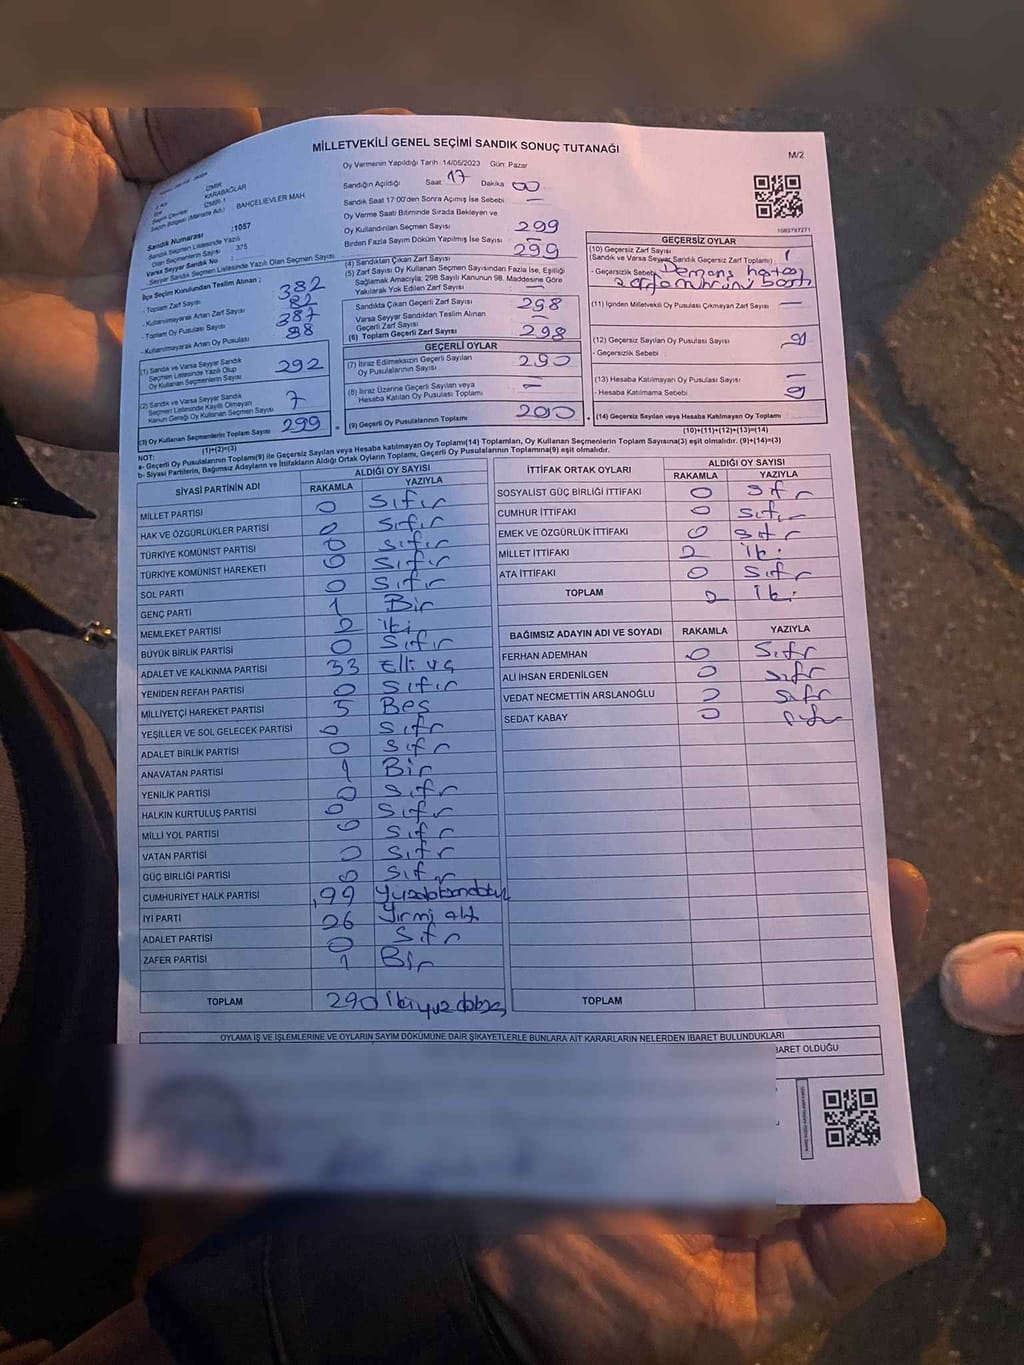 MİLLETVEKİLİ GENEL SEÇİMİ SANDIK SONUÇ TUTANAĞI
M/2
Oy Vermenin Yapıldığı Tarih :14/05/2023 Gün: Pazar
İZMİR
KARABAĞLAR
İZMİR-1
Seçim Bölgesi (Mahalle Adı) : BAHÇELİEVLER MAH
Sandık Numarası :1057
Sandık Seçmen Listesinde Yazılı
Olan Seçmenlerin Sayısı : 375
Varsa Seyyar Sandık No :
Seyyar Sandık Seçmen Listesinde Yazılı Olan Seçmen Sayısı :
İlçe Seçim Kurulundan Teslim Alınan ;
- Toplam Zarf Sayısı 382
- Kullanılmayarak Artan Zarf Sayısı 82
- Toplam Oy Pusulası Sayısı 387
- Kullanılmayarak Artan Oy Pusulası 88
(1) Sandık ve Varsa Seyyar Sandık
Seçmen Listesinde Yazılı Olup
Oy Kullanan Seçmenlerin Sayısı 292
(2) Sandık ve Varsa Seyyar Sandık
Seçmen Listesinde Kayıtlı Olmayan
Kanun Gereği Oy Kullanan Seçmen Sayısı 7
(3) Oy Kullanan Seçmenlerin Toplam Sayısı 299
(1)+(2)=(3)
Sandığın Açıldığı Saat 17 Dakika 00
Sandık Saat 17:00'den Sonra Açılmış İse Sebebi —
Oy Verme Saati Bitiminde Sırada Bekleyen ve
Oy Kullandırılan Seçmen Sayısı 299
Birden Fazla Sayım Döküm Yapılmış İse Sayısı : —
(4) Sandıktan Çıkan Zarf Sayısı 299
(5) Zarf Sayısı Oy Kullanan Seçmen Sayısından Fazla İse, Eşitliği
Sağlamak Amacıyla; 298 Sayılı Kanunun 98. Maddesine Göre
Yakılarak Yok Edilen Zarf Sayısı —
Sandıkta Çıkan Geçerli Zarf Sayısı 298
Varsa Seyyar Sandıktan Teslim Alınan
Geçerli Zarf Sayısı —
(6) Toplam Geçerli Zarf Sayısı 298
GEÇERLİ OYLAR
(7) İtiraz Edilmeksizin Geçerli Sayılan
Oy Pusulalarının Sayısı 290
(8) İtiraz Üzerine Geçerli Sayılan veya
Hesaba Katılan Oy Pusulası Toplamı —
(9) Geçerli Oy Pusulalarının Toplamı 290
1083797271
GEÇERSİZ OYLAR
(10) Geçersiz Zarf Sayısı
(Sandık ve Varsa Seyyar Sandık Geçersiz Zarf Toplamı) : 1
- Geçersizlik Sebebi
(11) İçinden Milletvekili Oy Pusulası Çıkmayan Zarf Sayısı —
(12) Geçersiz Sayılan Oy Pusulası Sayısı
- Geçersizlik Sebebi :
(13) Hesaba Katılmayan Oy Pusulası Sayısı —
- Hesaba Katılmama Sebebi
(14) Geçersiz Sayılan veya Hesaba Katılmayan Oy Toplamı 9
(10)+(11)+(12)+(13)=(14)
NOT:
a- Geçerli Oy Pusulalarının Toplamı(9) ile Geçersiz Sayılan veya Hesaba katılmayan Oy Toplamı(14) Toplamları, Oy Kullanan Seçmenlerin Toplam Sayısına(3) eşit olmalıdır. (9)+(14)=(3)
b- Siyasi Partilerin, Bağımsız Adayların ve İttifakların Aldığı Ortak Oyların Toplamı, Geçerli Oy Pusulalarının Toplamına(9) eşit olmalıdır.
SİYASİ PARTİNİN ADI ALDIĞI OY SAYISI
RAKAMLA YAZIYLA
MİLLET PARTİSİ 0 Sıfır
HAK VE ÖZGÜRLÜKLER PARTİSİ 0 Sıfır
TÜRKİYE KOMÜNİST PARTİSİ 0 Sıfır
TÜRKİYE KOMÜNİST HAREKETİ 0 Sıfır
SOL PARTİ 0 Sıfır
GENÇ PARTİ 1 Bir
MEMLEKET PARTİSİ 2 iki
BÜYÜK BİRLİK PARTİSİ 0 Sıfır
ADALET VE KALKINMA PARTİSİ Elli
YENİDEN REFAH PARTİSİ 0 Sıfır
MİLLİYETÇİ HAREKET PARTİSİ 5 Beş
YEŞİLLER VE SOL GELECEK PARTİSİ 0 Sıfır
ADALET BİRLİK PARTİSİ 0 Sıfır
ANAVATAN PARTİSİ 1 Bir
YENİLİK PARTİSİ 0 Sıfır
HALKIN KURTULUŞ PARTİSİ 0 Sıfır
MİLLİ YOL PARTİSİ 0 Sıfır
VATAN PARTİSİ 0 Sıfır
GÜÇ BİRLİĞİ PARTİSİ 0 Sıfır
CUMHURİYET HALK PARTİSİ 199
İYİ PARTİ 26 Yirmi altı
ADALET PARTİSİ 0 Sıfır
ZAFER PARTİSİ 1 Bir
TOPLAM 290
İTTİFAK ORTAK OYLARI ALDIĞI OY SAYISI
RAKAMLA YAZIYLA
SOSYALİST GÜÇ BİRLİĞİ İTTİFAKI 0 Sıfır
CUMHUR İTTİFAKI 0 Sıfır
EMEK VE ÖZGÜRLÜK İTTİFAKI 0 Sıfır
MİLLET İTTİFAKI 2 iki
ATA İTTİFAKI 0 Sıfır
TOPLAM 2 iki
BAĞIMSIZ ADAYIN ADI VE SOYADI RAKAMLA YAZIYLA
FERHAN ADEMHAN 0 Sıfır
ALİ İHSAN ERDENİLGEN 0 Sıfır
VEDAT NECMETTİN ARSLANOĞLU 0 Sıfır
SEDAT KABAY 0 Sıfır
TOPLAM
OYLAMA İŞ VE İŞLEMLERİNE VE OYLARIN SAYIM DÖKÜMÜNE DAİR ŞİKAYETLERLE BUNLARA AİT KARARLARIN NELERDEN İBARET BULUNDUKLARI
BARET OLDUĞU